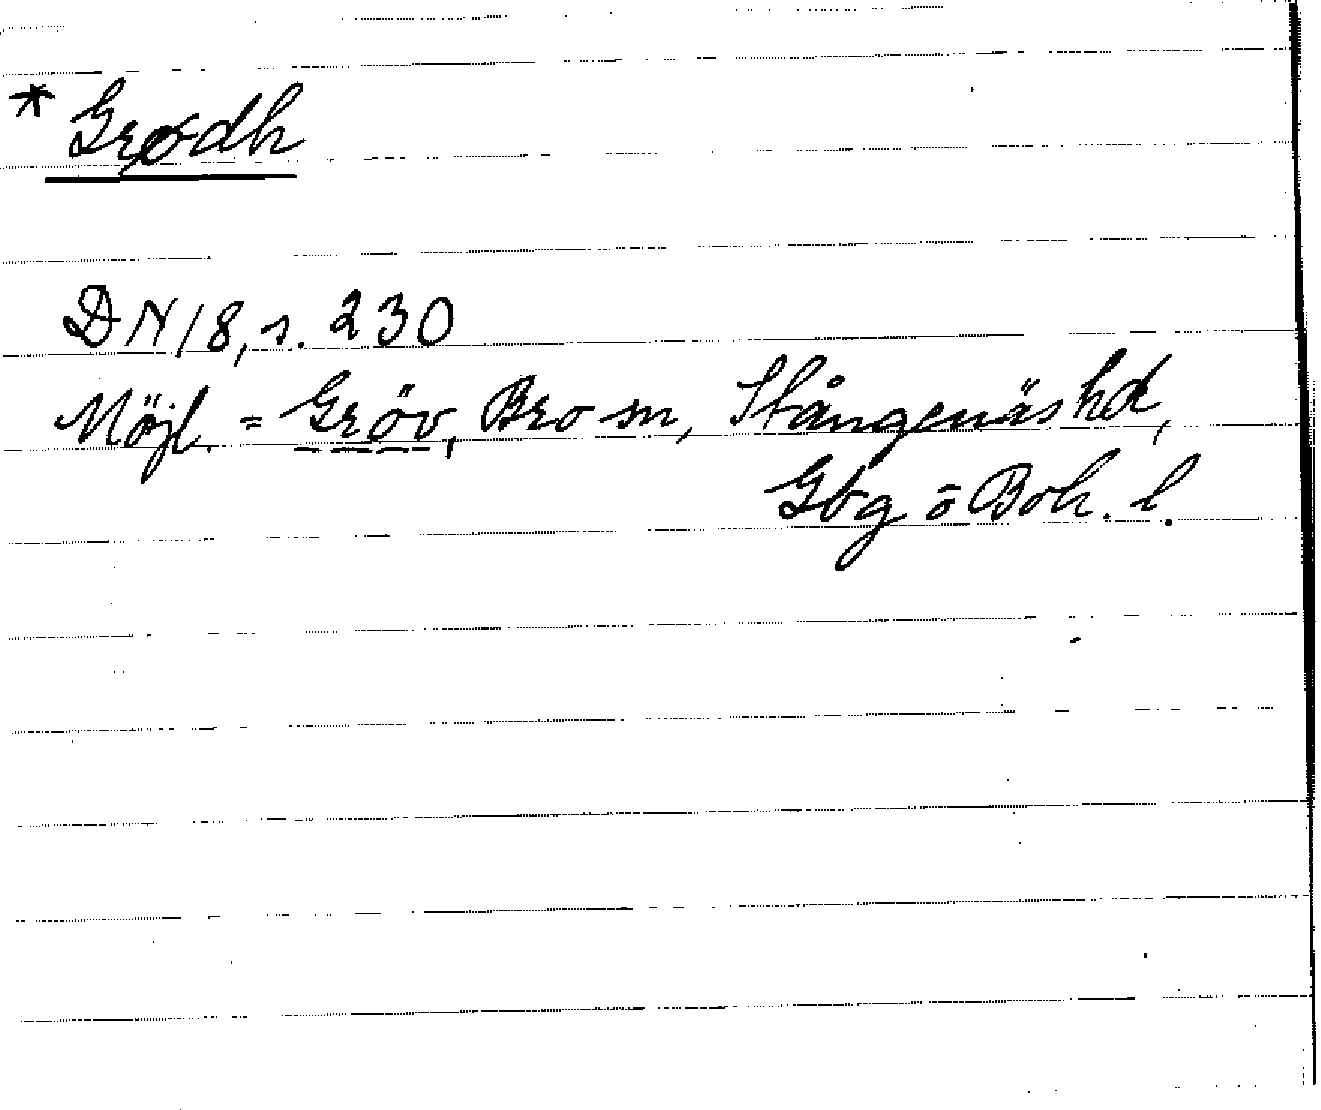 * Grødh
DN 18, s. 230
Möjl. = Gröv, Bro sn, Stångenäs hd,
Gbg o Boh. l.